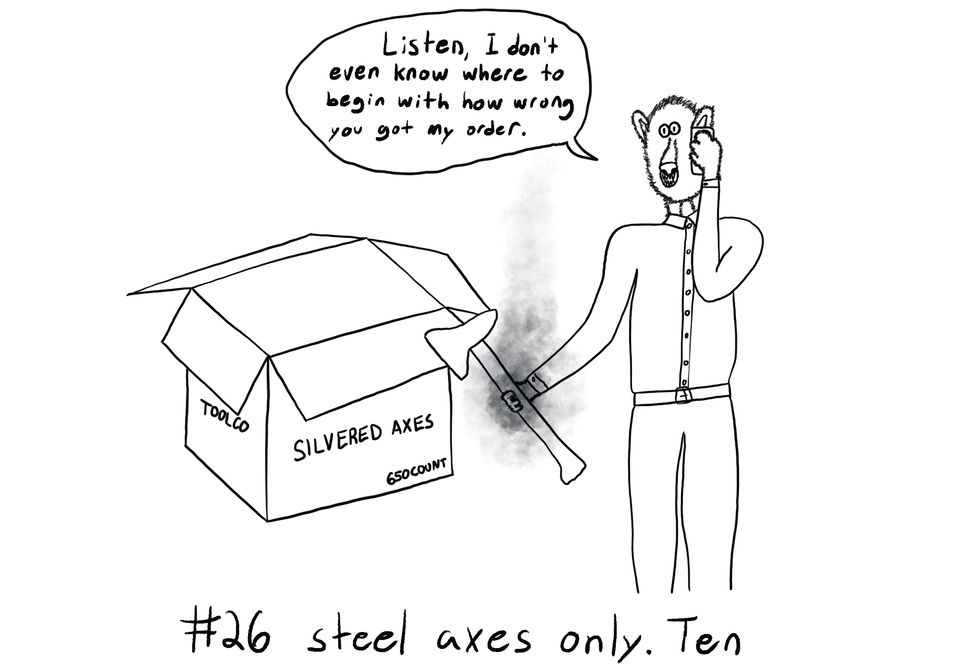 Listen, I don't
even know where to
begin with how wrong
you got my order.
TOOLCO
SILVERED AXES
650COUNT
#26 steel axes only. Ten